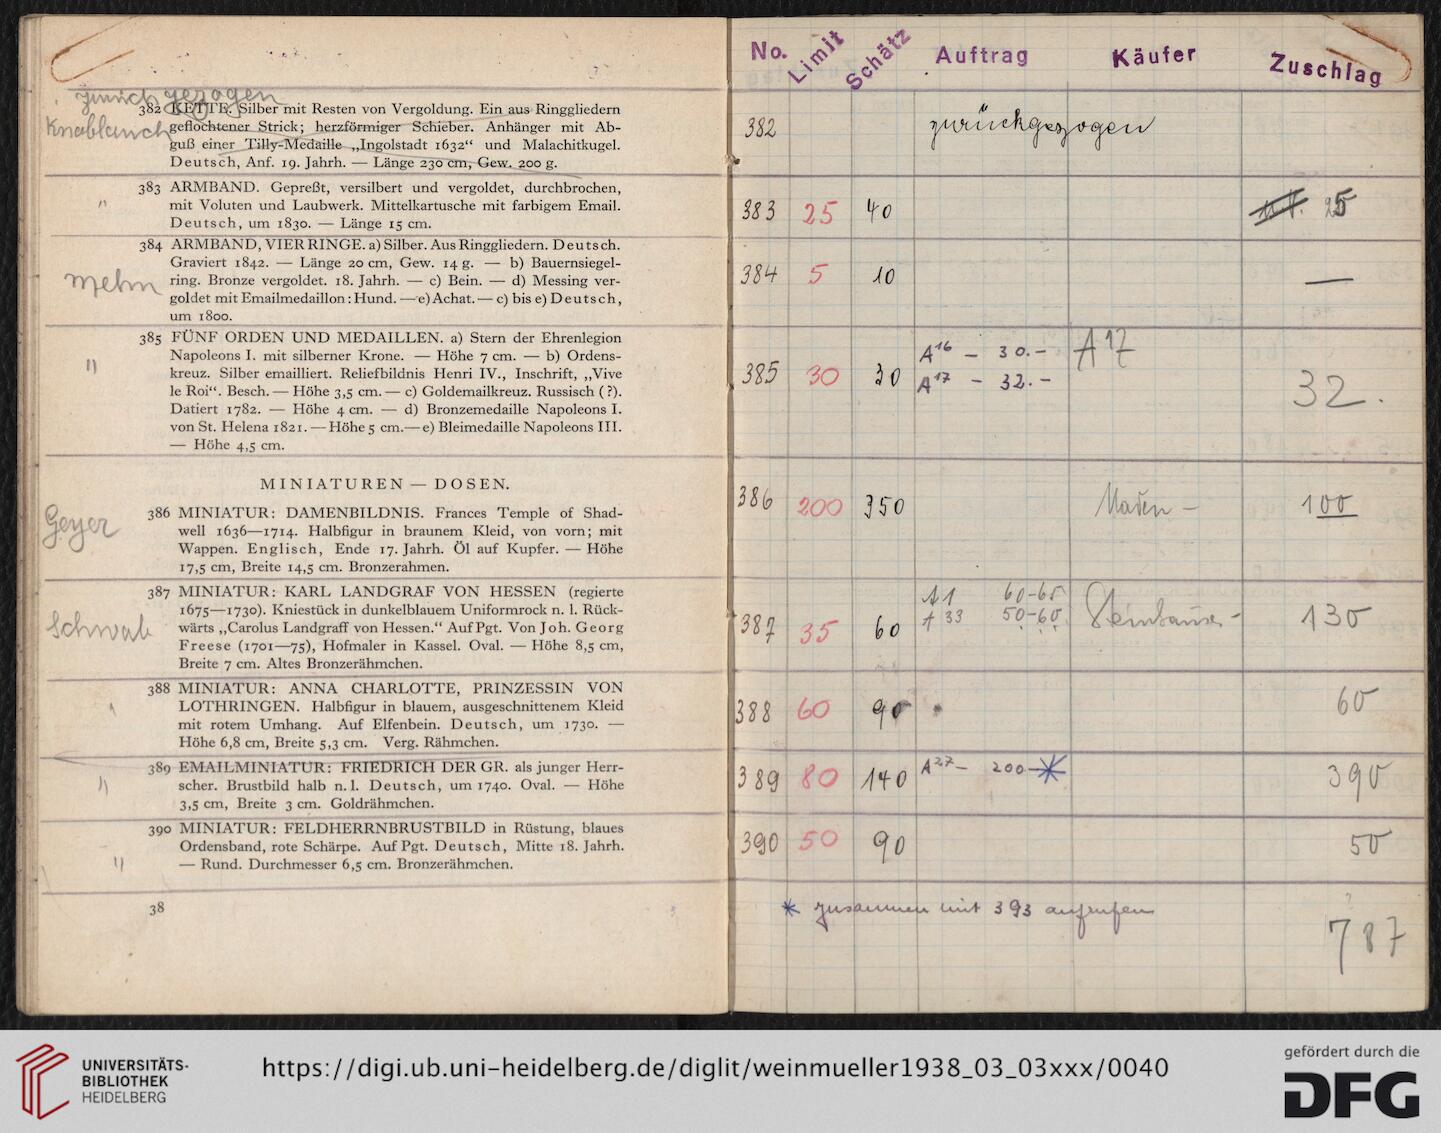 zurückgezogen
Knoblauch
382 KETTE. Silber mit Resten von Vergoldung. Ein aus Ringgliedern
geflochtener Strick; herzförmiger Schieber. Anhänger mit Ab-
guß einer Tilly-Medaille „Ingolstadt 1632“ und Malachitkugel.
Deutsch, Anf. 19. Jahrh. — Länge 230 cm, Gew. 200 g.
" 383 ARMBAND. Gepreßt, versilbert und vergoldet, durchbrochen,
mit Voluten und Laubwerk. Mittelkartusche mit farbigem Email.
Deutsch, um 1830. — Länge 15 cm.
384 ARMBAND, VIER RINGE. a) Silber. Aus Ringgliedern. Deutsch.
Graviert 1842. — Länge 20 cm, Gew. 14 g. — b) Bauernsiegel-
ring. Bronze vergoldet. 18. Jahrh. — c) Bein. — d) Messing ver-
goldet mit Emailmedaillon: Hund. — e) Achat. — c) bis e) Deutsch,
um 1800.
" 385 FÜNF ORDEN UND MEDAILLEN. a) Stern der Ehrenlegion
Napoleons I. mit silberner Krone. — Höhe 7 cm. — b) Ordens-
kreuz. Silber emailliert. Reliefbildnis Henri IV., Inschrift, „Vive
le Roi“. Besch. — Höhe 3,5 cm. — c) Goldemailkreuz. Russisch (?).
Datiert 1782. — Höhe 4 cm. — d) Bronzemedaille Napoleons I.
von St. Helena 1821. — Höhe 5 cm. — e) Bleimedaille Napoleons III.
— Höhe 4,5 cm.
MINIATUREN — DOSEN.
Geyer
386 MINIATUR: DAMENBILDNIS. Frances Temple of Shad-
well 1636—1714. Halbfigur in braunem Kleid, von vorn; mit
Wappen. Englisch, Ende 17. Jahrh. Öl auf Kupfer. — Höhe
17,5 cm, Breite 14,5 cm. Bronzerahmen.
Schwab
387 MINIATUR: KARL LANDGRAF VON HESSEN (regierte
1675—1730). Kniestück in dunkelblauem Uniformrock n. l. Rück-
wärts „Carolus Landgraff von Hessen.“ Auf Pgt. Von Joh. Georg
Freese (1701—75), Hofmaler in Kassel. Oval. — Höhe 8,5 cm,
Breite 7 cm. Altes Bronzerähmchen.
388 MINIATUR: ANNA CHARLOTTE, PRINZESSIN VON
LOTHRINGEN. Halbfigur in blauem, ausgeschnittenem Kleid
mit rotem Umhang. Auf Elfenbein. Deutsch, um 1730. —
Höhe 6,8 cm, Breite 5,3 cm. Verg. Rähmchen.
" 389 EMAILMINIATUR: FRIEDRICH DER GR. als junger Herr-
scher. Brustbild halb n. l. Deutsch, um 1740. Oval. — Höhe
3,5 cm, Breite 3 cm. Goldrähmchen.
" 390 MINIATUR: FELDHERRNBRUSTBILD in Rüstung, blaues
Ordensband, rote Schärpe. Auf Pgt. Deutsch, Mitte 18. Jahrh.
— Rund. Durchmesser 6,5 cm. Bronzerähmchen.
38
No. Limit Schätz Auftrag Käufer Zuschlag
382 zurückgezogen
383 25 40 25
384 5 10 —
385 30 30 A16 — 30.— A17 32.
A17 — 32.—
386 200 350 100
387 35 60 A1 60-65 130
A 33 50-60
388 60 90 60
389 80 140 A27 — 200 —* 390
390 50 90 50
* zusammen mit 393 aufrufen
787
UNIVERSITÄTS-
BIBLIOTHEK
HEIDELBERG
https://digi.ub.uni-heidelberg.de/diglit/weinmueller1938_03_03xxx/0040
gefördert durch die
DFG